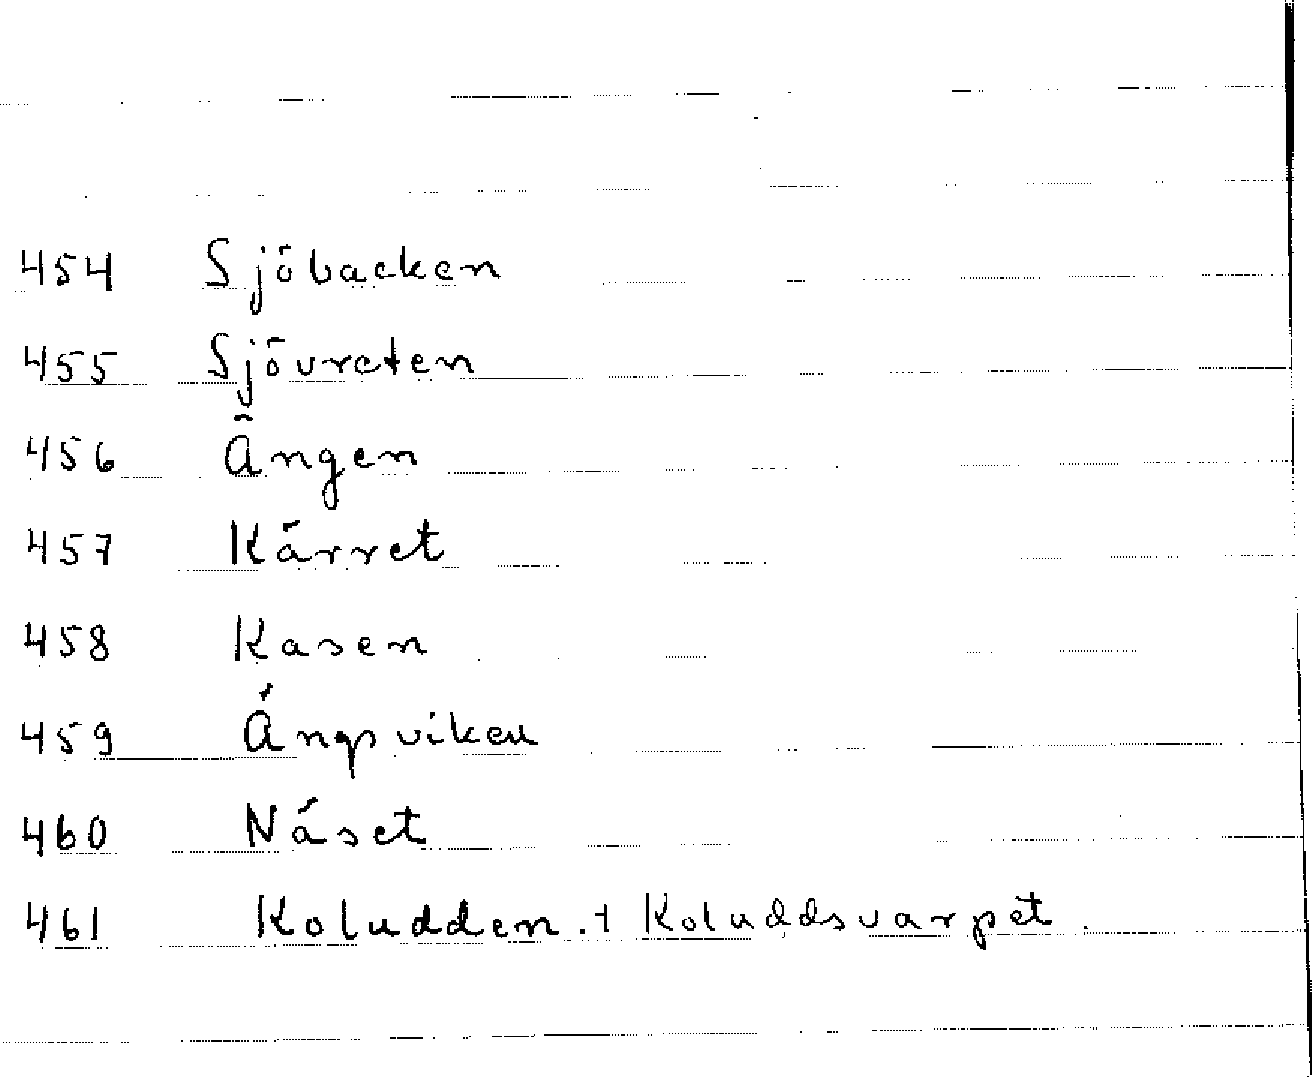 454 Sjöbacken
455 Sjövreten
456 Ängen
457 Kärret
458 Kasen
459 Ängsviken
460 Näset
461 Koludden. + Koluddsvarpet.